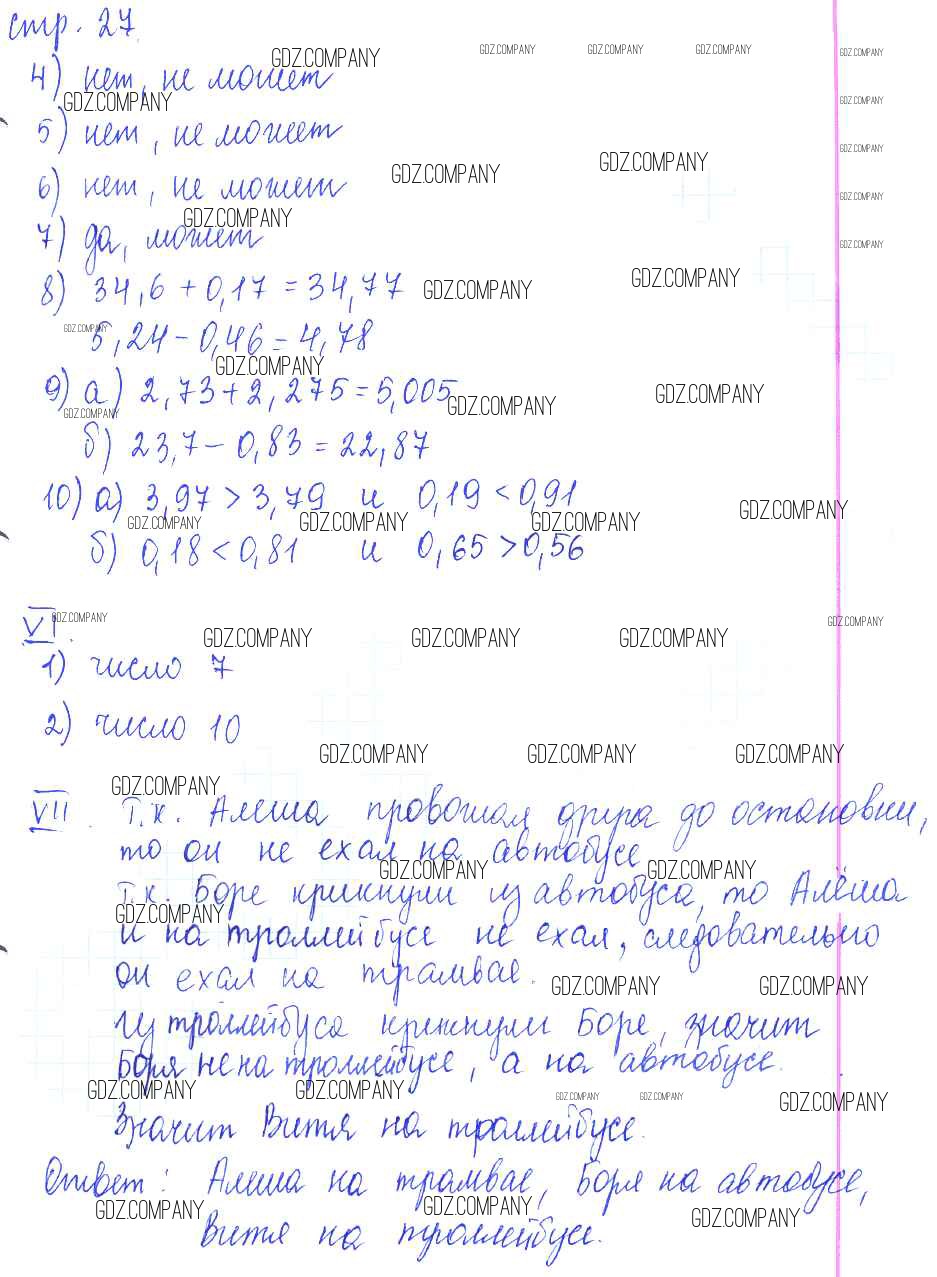 стр. 27.
4) нет, не может
5) нет, не может
6) нет, не может
7) да, может
8) 34,6 + 0,17 = 34,77
5,24 - 0,46 = 4,78
9) а) 2,73 + 2,275 = 5,005
б) 23,7 - 0,83 = 22,87
10) а) 3,97 > 3,79 и 0,19 < 0,91
б) 0,18 < 0,81 и 0,65 > 0,56
VI.
1) число 7
2) число 10
VII. Т.к. Алеша провожал друга до остановки,
то он не ехал на автобусе
Т.к. Боре крикнули из автобуса, то Алёша
и на троллейбусе не ехал, следовательно
он ехал на трамвае.
Из троллейбуса крикнули Боре, значит
Боря не на троллейбусе, а на автобусе.
Значит Витя на троллейбусе.
Ответ: Алеша на трамвае, Боря на автобусе,
Витя на троллейбусе.
GDZ.COMPANY